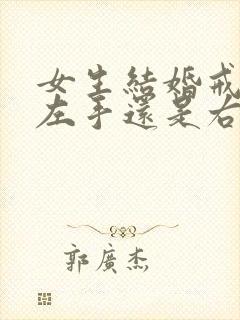 女生結婚戒
左手還是右
郭廣杰